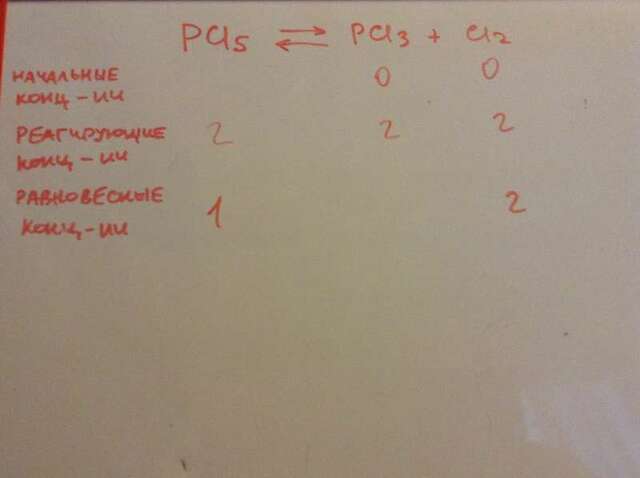 PCl5 ⇌ PCl3 + Cl2
НАЧАЛЬНЫЕ 0 0
КОНЦ-ИИ
РЕАГИРУЮЩИЕ 2 2 2
КОНЦ-ИИ
РАВНОВЕСНЫЕ 1 2
КОНЦ-ИИ